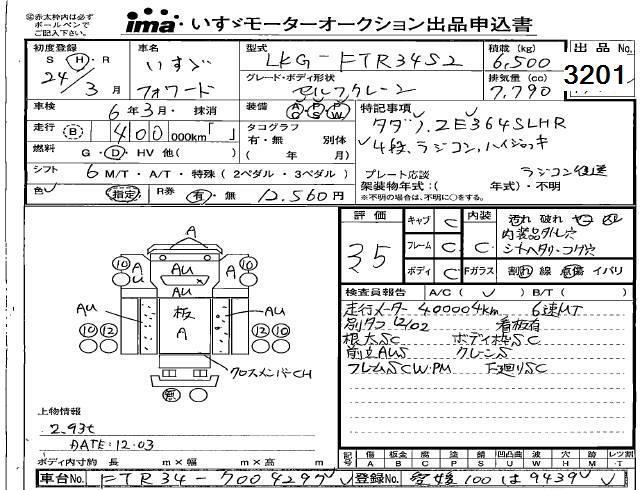 ㊟赤太枠内は必ず
ボールペンで
ご記入ください。
ima いすゞモーターオークション出品申込書
初度登録
S H・R
24/3月
車名
いすゞ
フォワード
型式
LKG-FTR34S2
グレード・ボディ形状
セルフクレーン
積載 (kg)
6,500
排気量 (cc)
7,790
出品No.
3201
車検 6年3月・抹消
装備
特記事項
タダノ.ZE364SLHR
4段、ラジコン,ハイジャッキ
走行 B 400 000km「 」
タコグラフ
有・無 別体
( 年 月)
燃料 G・D・HV 他( )
シフト 6 M/T・A/T・特殊(2ペダル・3ペダル)
プレート応談
架装物年式:( 年式)・不明
※不明の場合は、不明に○をする。
色 指定 R券 有・無 12,560円
評価
3.5
キャブ C
フレーム C
ボディ C
内装 C
Fガラス
汚れ 破れ
割れ 線 点傷 イバリ
検査員報告 A/C( ) B/T( )
走行メーター 400004km 6速MT
別タコ 12/02 看板有
根太SC ボディ枠SC
前立AUS クレーンS
フレームSCW・PM 下廻りSC
A
10 A AU A 10
AU
AU AU
板
A
10 12 12 10
クロスメンバーCH
無
上物情報
2.93t
DATE:12.03
ボディ内寸約 長 m×幅 m×高 m
記号
傷 A
板金 B
腐 C
塗 P
錆 S
凹凸曲 U
波 W
穴 H
跡 M
レツ割 T
車台No. FTR34-7004297
登録No. 愛媛100は9439